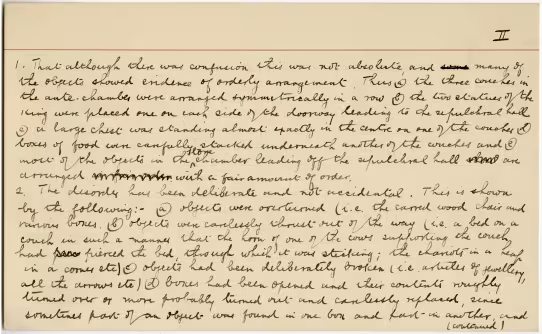 II
1. That although there was confusion this was not absolute, and some many of
the objects showed evidence of orderly arrangement. Thus (a) the three couches in
the ante-chamber were arranged symmetrically in a row (b) the two statues of the
King were placed one on each side of the doorway leading to the sepulchral hall
(c) a large chest was standing almost exactly in the centre on one of the couches (d)
boxes of food were carefully stacked underneath another of the couches and (e)
most of the objects in the store chamber leading off the sepulchral hall are
arranged with a fair amount of order.
2. The disorder has been deliberate and not accidental. This is shown
by the following:- (a) objects were overturned (i.e. the carved wood chair and
various boxes, (b) objects were carelessly thrust out of the way (i.e. a bed on a
couch in such a manner that the horn of one of the cows supporting the couch
had pierced the bed, through which it was sticking; the chariots in a heap
in a corner etc) (c) objects had been deliberately broken (i.e. articles of jewellery,
all the arrows etc) (d) boxes had been opened and their contents roughly
turned over or more probably turned out and carelessly replaced, since
sometimes part of an object was found in one box and part in another, and
(continued)